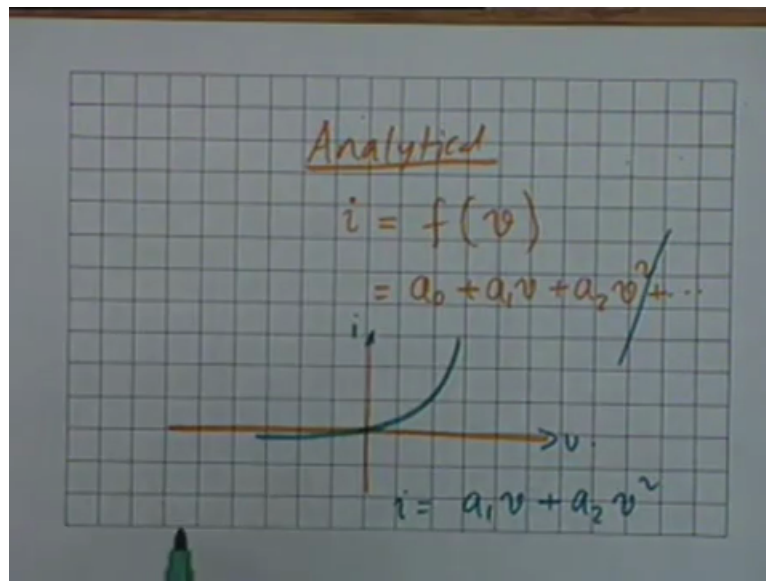 Analytical
i = f(v)
= a₀ + a₁v + a₂v² + ...
i
v
i = a₁v + a₂v²